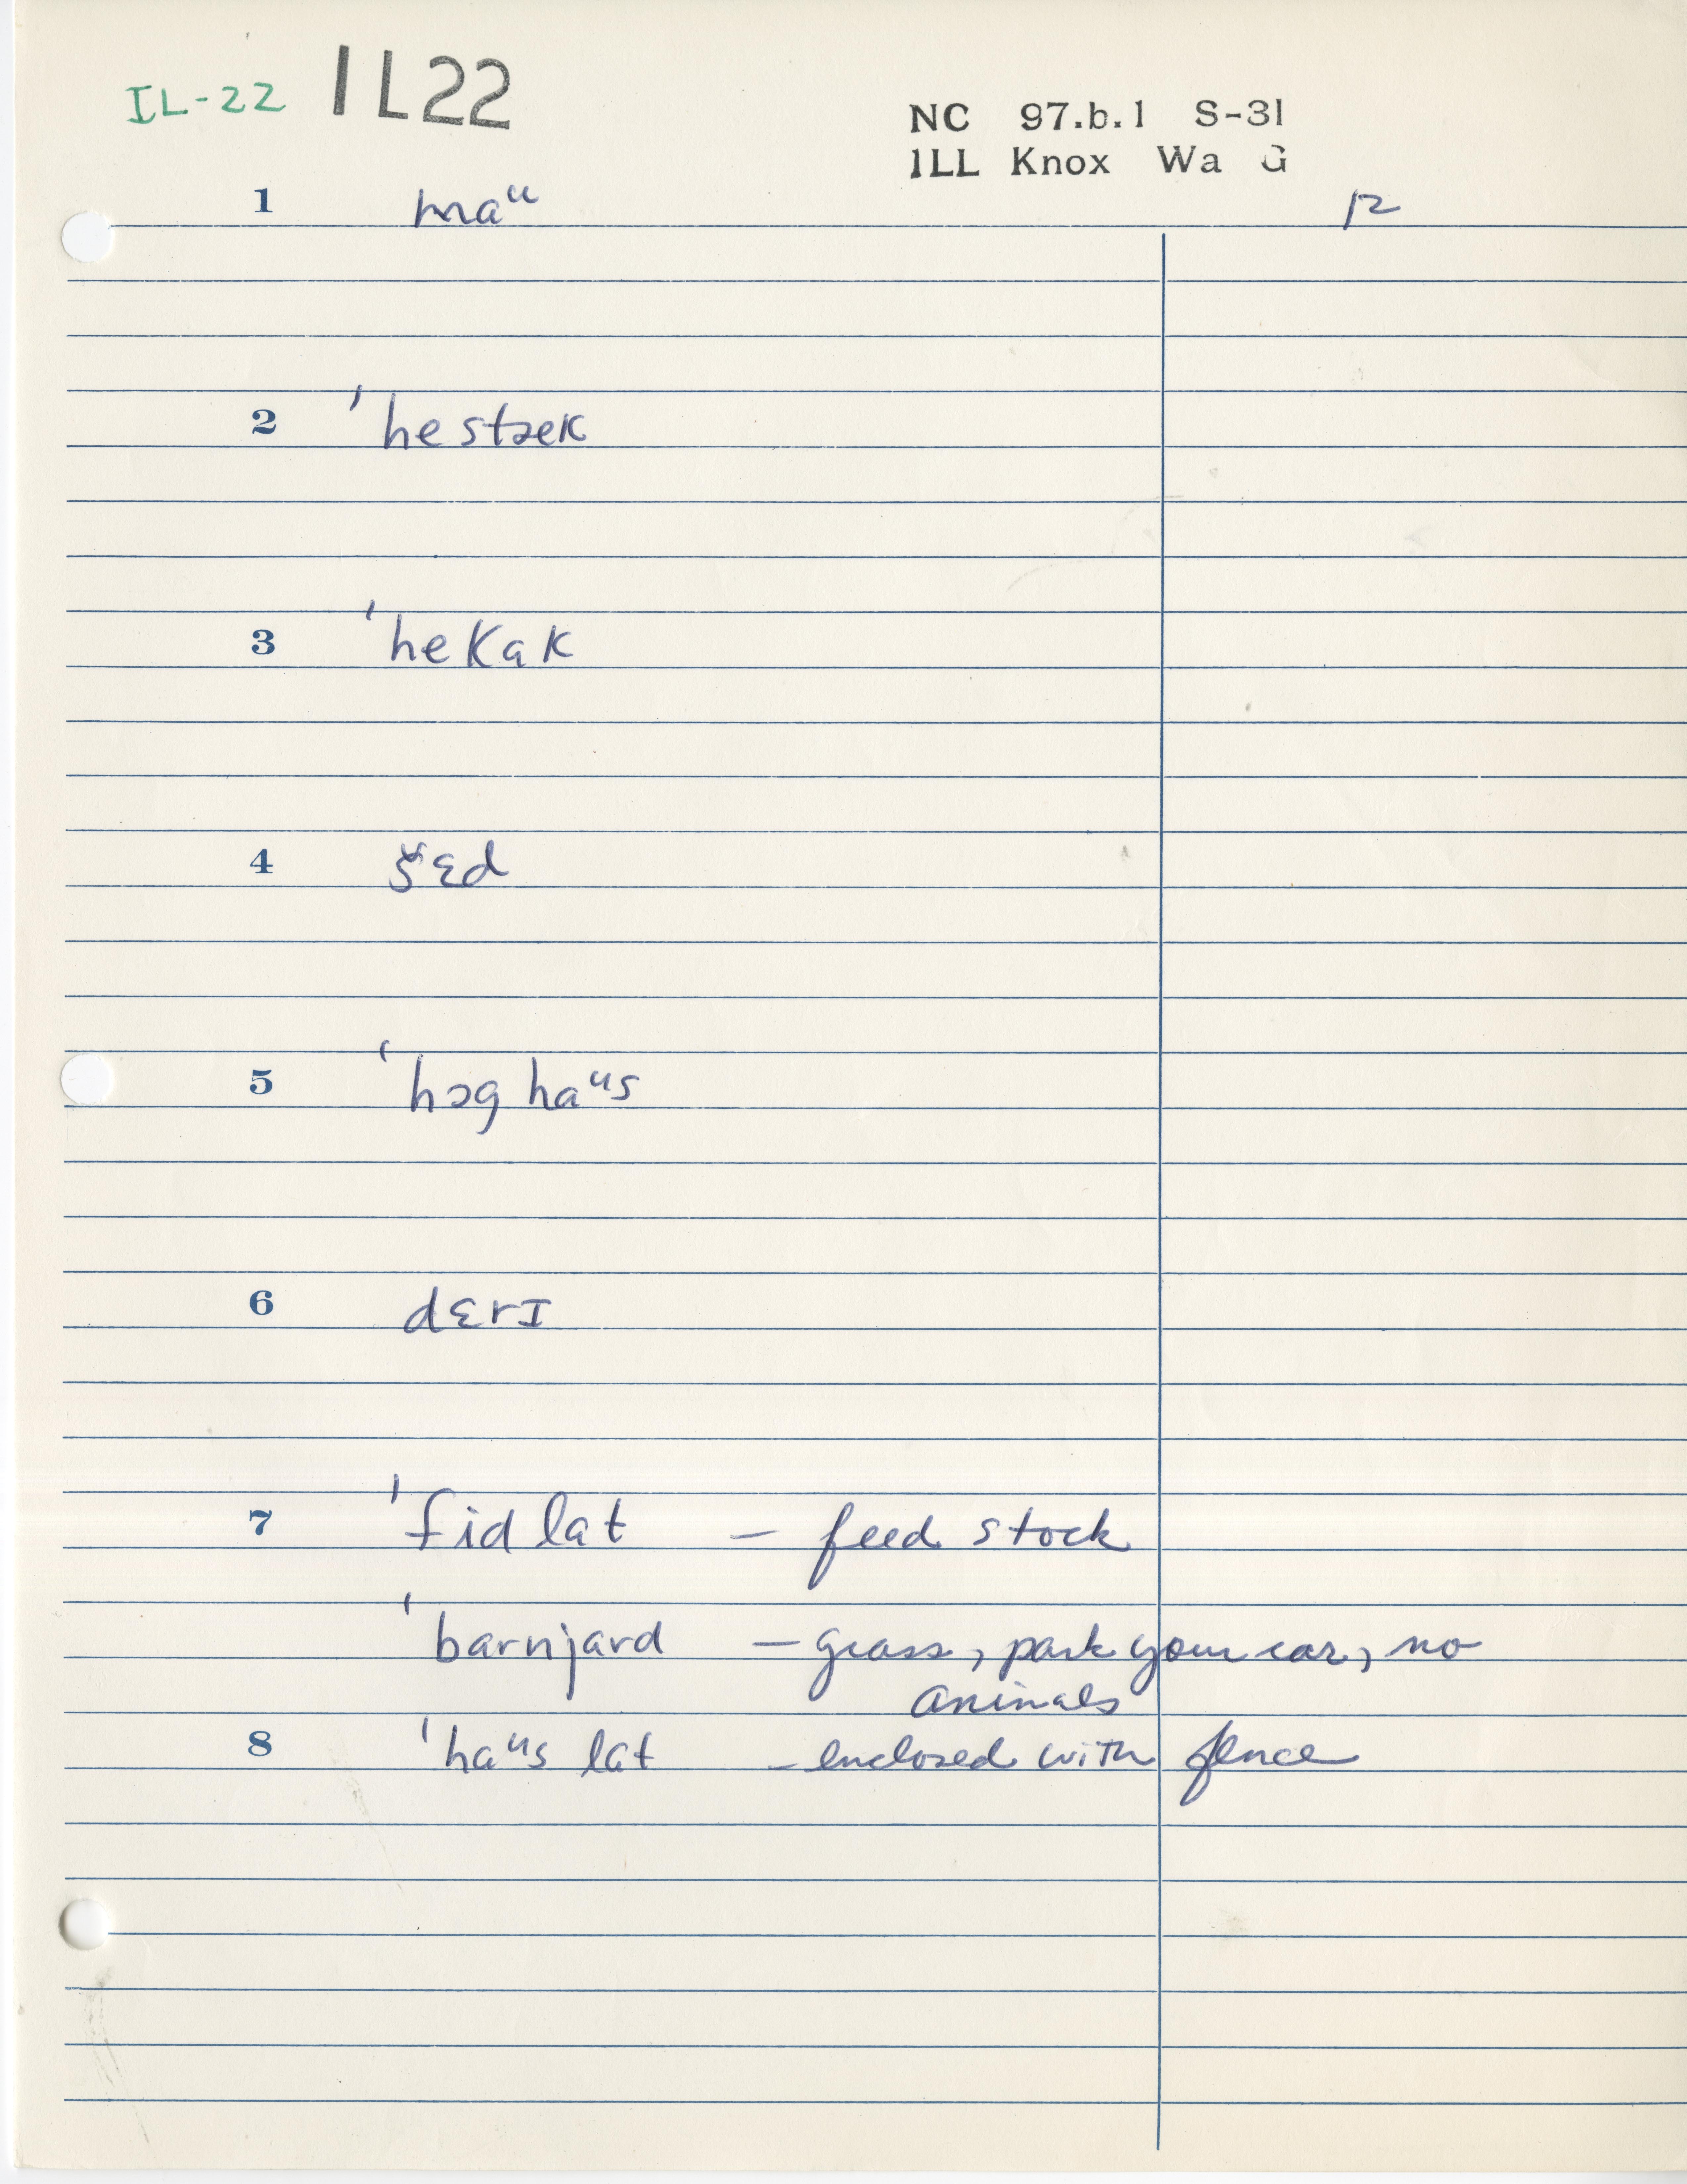 IL-22 IL22
NC 97.b.1 S-31
ILL Knox Wa G
1 maᵘ 12
2 'hestæk
3 'hekak
4 š̌ɛd
5 'hɔg haᵘs
6 dɛrɪ
7 'fid lat – feed stock
'barnjard – grass, park your car, no
animals
8 'haᵘs lat – enclosed with fence